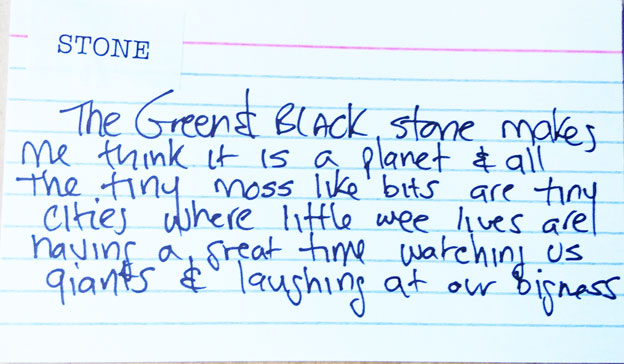 STONE
The Green & BLACK stone makes
me think it is a planet & all
the tiny moss like bits are tiny
cities where little wee lives are
having a great time watching us
giants & laughing at our bigness